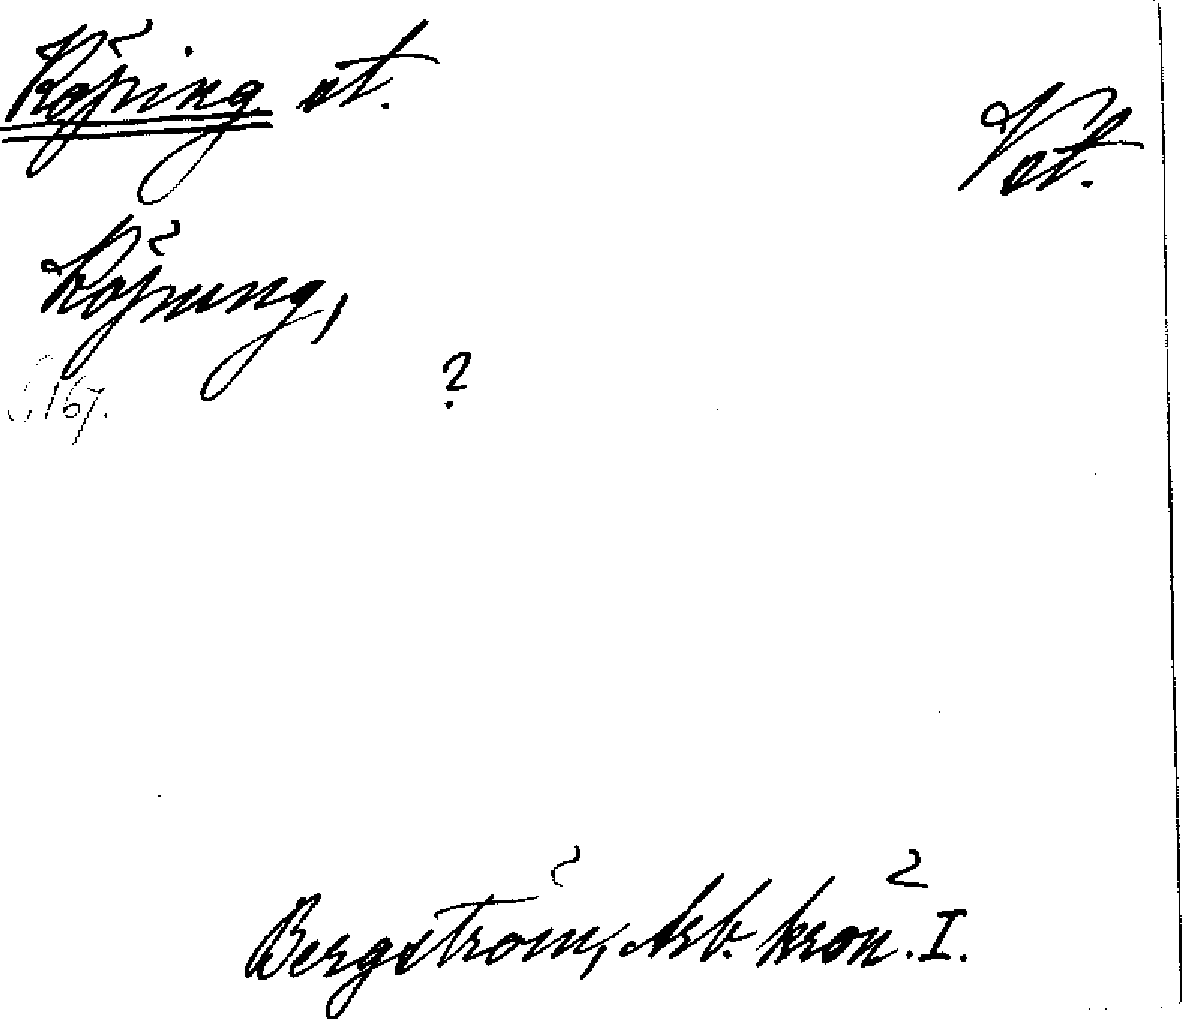 Köping st.
Vst.
Köpung,
S. 167.
?
Bergström, Arb. krön. I.